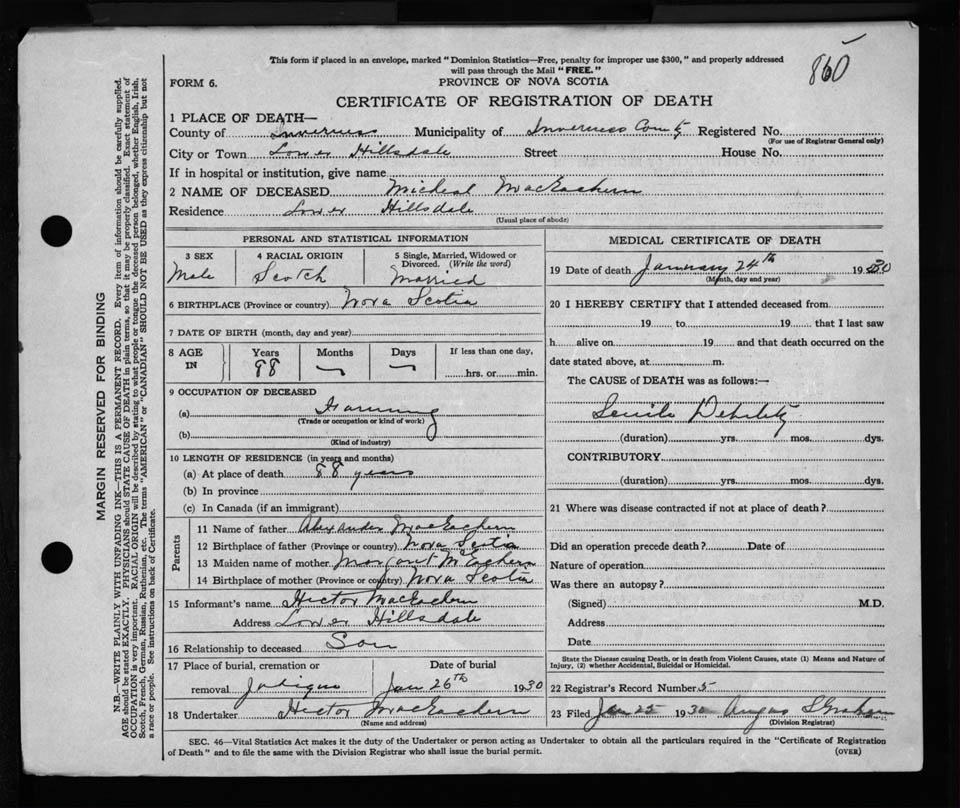 860
This form if placed in an envelope, marked "Dominion Statistics—Free, penalty for improper use $300," and properly addressed
will pass through the Mail "FREE."
FORM 6.
PROVINCE OF NOVA SCOTIA
CERTIFICATE OF REGISTRATION OF DEATH
1 PLACE OF DEATH—
County of Inverness Municipality of Inverness County Registered No.
(For use of Registrar General only)
City or Town Lower Hillsdale Street House No.
If in hospital or institution, give name
2 NAME OF DECEASED Micheal MacEachern
Residence Lower Hillsdale
(Usual place of abode)
PERSONAL AND STATISTICAL INFORMATION
3 SEX 4 RACIAL ORIGIN 5 Single, Married, Widowed or
Divorced. (Write the word)
Male Scotch Married
6 BIRTHPLACE (Province or country) Nova Scotia
7 DATE OF BIRTH (month, day and year)
8 AGE IN Years Months Days If less than one day,
88 hrs. or min.
9 OCCUPATION OF DECEASED
(a) Farming
(Trade or occupation or kind of work)
(b)
(Kind of industry)
10 LENGTH OF RESIDENCE (in years and months)
(a) At place of death 88 years
(b) In province
(c) In Canada (if an immigrant)
Parents
11 Name of father Alexander MacEachern
12 Birthplace of father (Province or country) Nova Scotia
13 Maiden name of mother Margaret McEachern
14 Birthplace of mother (Province or country) Nova Scotia
15 Informant's name Hector MacEachern
Address Lower Hillsdale
16 Relationship to deceased Son
17 Place of burial, cremation or Date of burial
removal Judique Jan 26th 1930
18 Undertaker Hector MacEachern
(Name and address)
MEDICAL CERTIFICATE OF DEATH
19 Date of death January 24th 1930
(Month, day and year)
20 I HEREBY CERTIFY that I attended deceased from
19 to 19 that I last saw
h alive on 19 and that death occurred on the
date stated above, at m.
The CAUSE of DEATH was as follows:—
Senile Debility
(duration) yrs. mos. dys.
CONTRIBUTORY
(duration) yrs. mos. dys.
21 Where was disease contracted if not at place of death?
Did an operation precede death? Date of
Nature of operation
Was there an autopsy?
(Signed) M.D.
Address
Date
State the Disease causing Death, or in death from Violent Causes, state (1) Means and Nature of
Injury, (2) whether Accidental, Suicidal or Homicidal.
22 Registrar's Record Number 5
23 Filed Jan 25 1930 Angus S Graham
(Division Registrar)
SEC. 46—Vital Statistics Act makes it the duty of the Undertaker or person acting as Undertaker to obtain all the particulars required in the "Certificate of Registration
of Death" and to file the same with the Division Registrar who shall issue the burial permit.
(OVER)
MARGIN RESERVED FOR BINDING
N.B.—WRITE PLAINLY WITH UNFADING INK—THIS IS A PERMANENT RECORD. Every item of information should be carefully supplied.
AGE should be stated EXACTLY. PHYSICIANS should STATE CAUSE OF DEATH in plain terms, so that it may be properly classified. Exact statement of
OCCUPATION is very important. RACIAL ORIGIN will be described by stating to what people or tongue the deceased person belonged, whether English, Irish,
Scotch, French, German, Russian, Ruthenian, etc. The terms "AMERICAN" or "CANADIAN" SHOULD NOT BE USED as they express citizenship but not
a race or people. See instructions on back of Certificate.